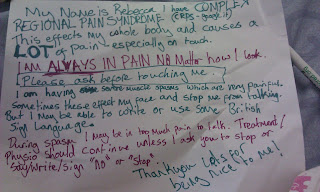 My Name is Rebecca I have COMPLEX
REGIONAL PAIN SYNDROME (CRPS - google it)
This effects my whole body and causes a
LOT of pain especially on touch.
I am ALWAYS IN PAIN No Matter how I look.
Please ask before touching me.
I am having severe muscle spasms which are very painful.
Sometimes these effect my face and stop me from talking.
But I may be able to write or use some British
Sign Language.
During spasm I may be in too much pain to talk. Treatment/
Physio should continue unless I ask you to stop or
Say/Write/Sign "NO" or "Stop".
Thankyou Lots for
being nice to me!